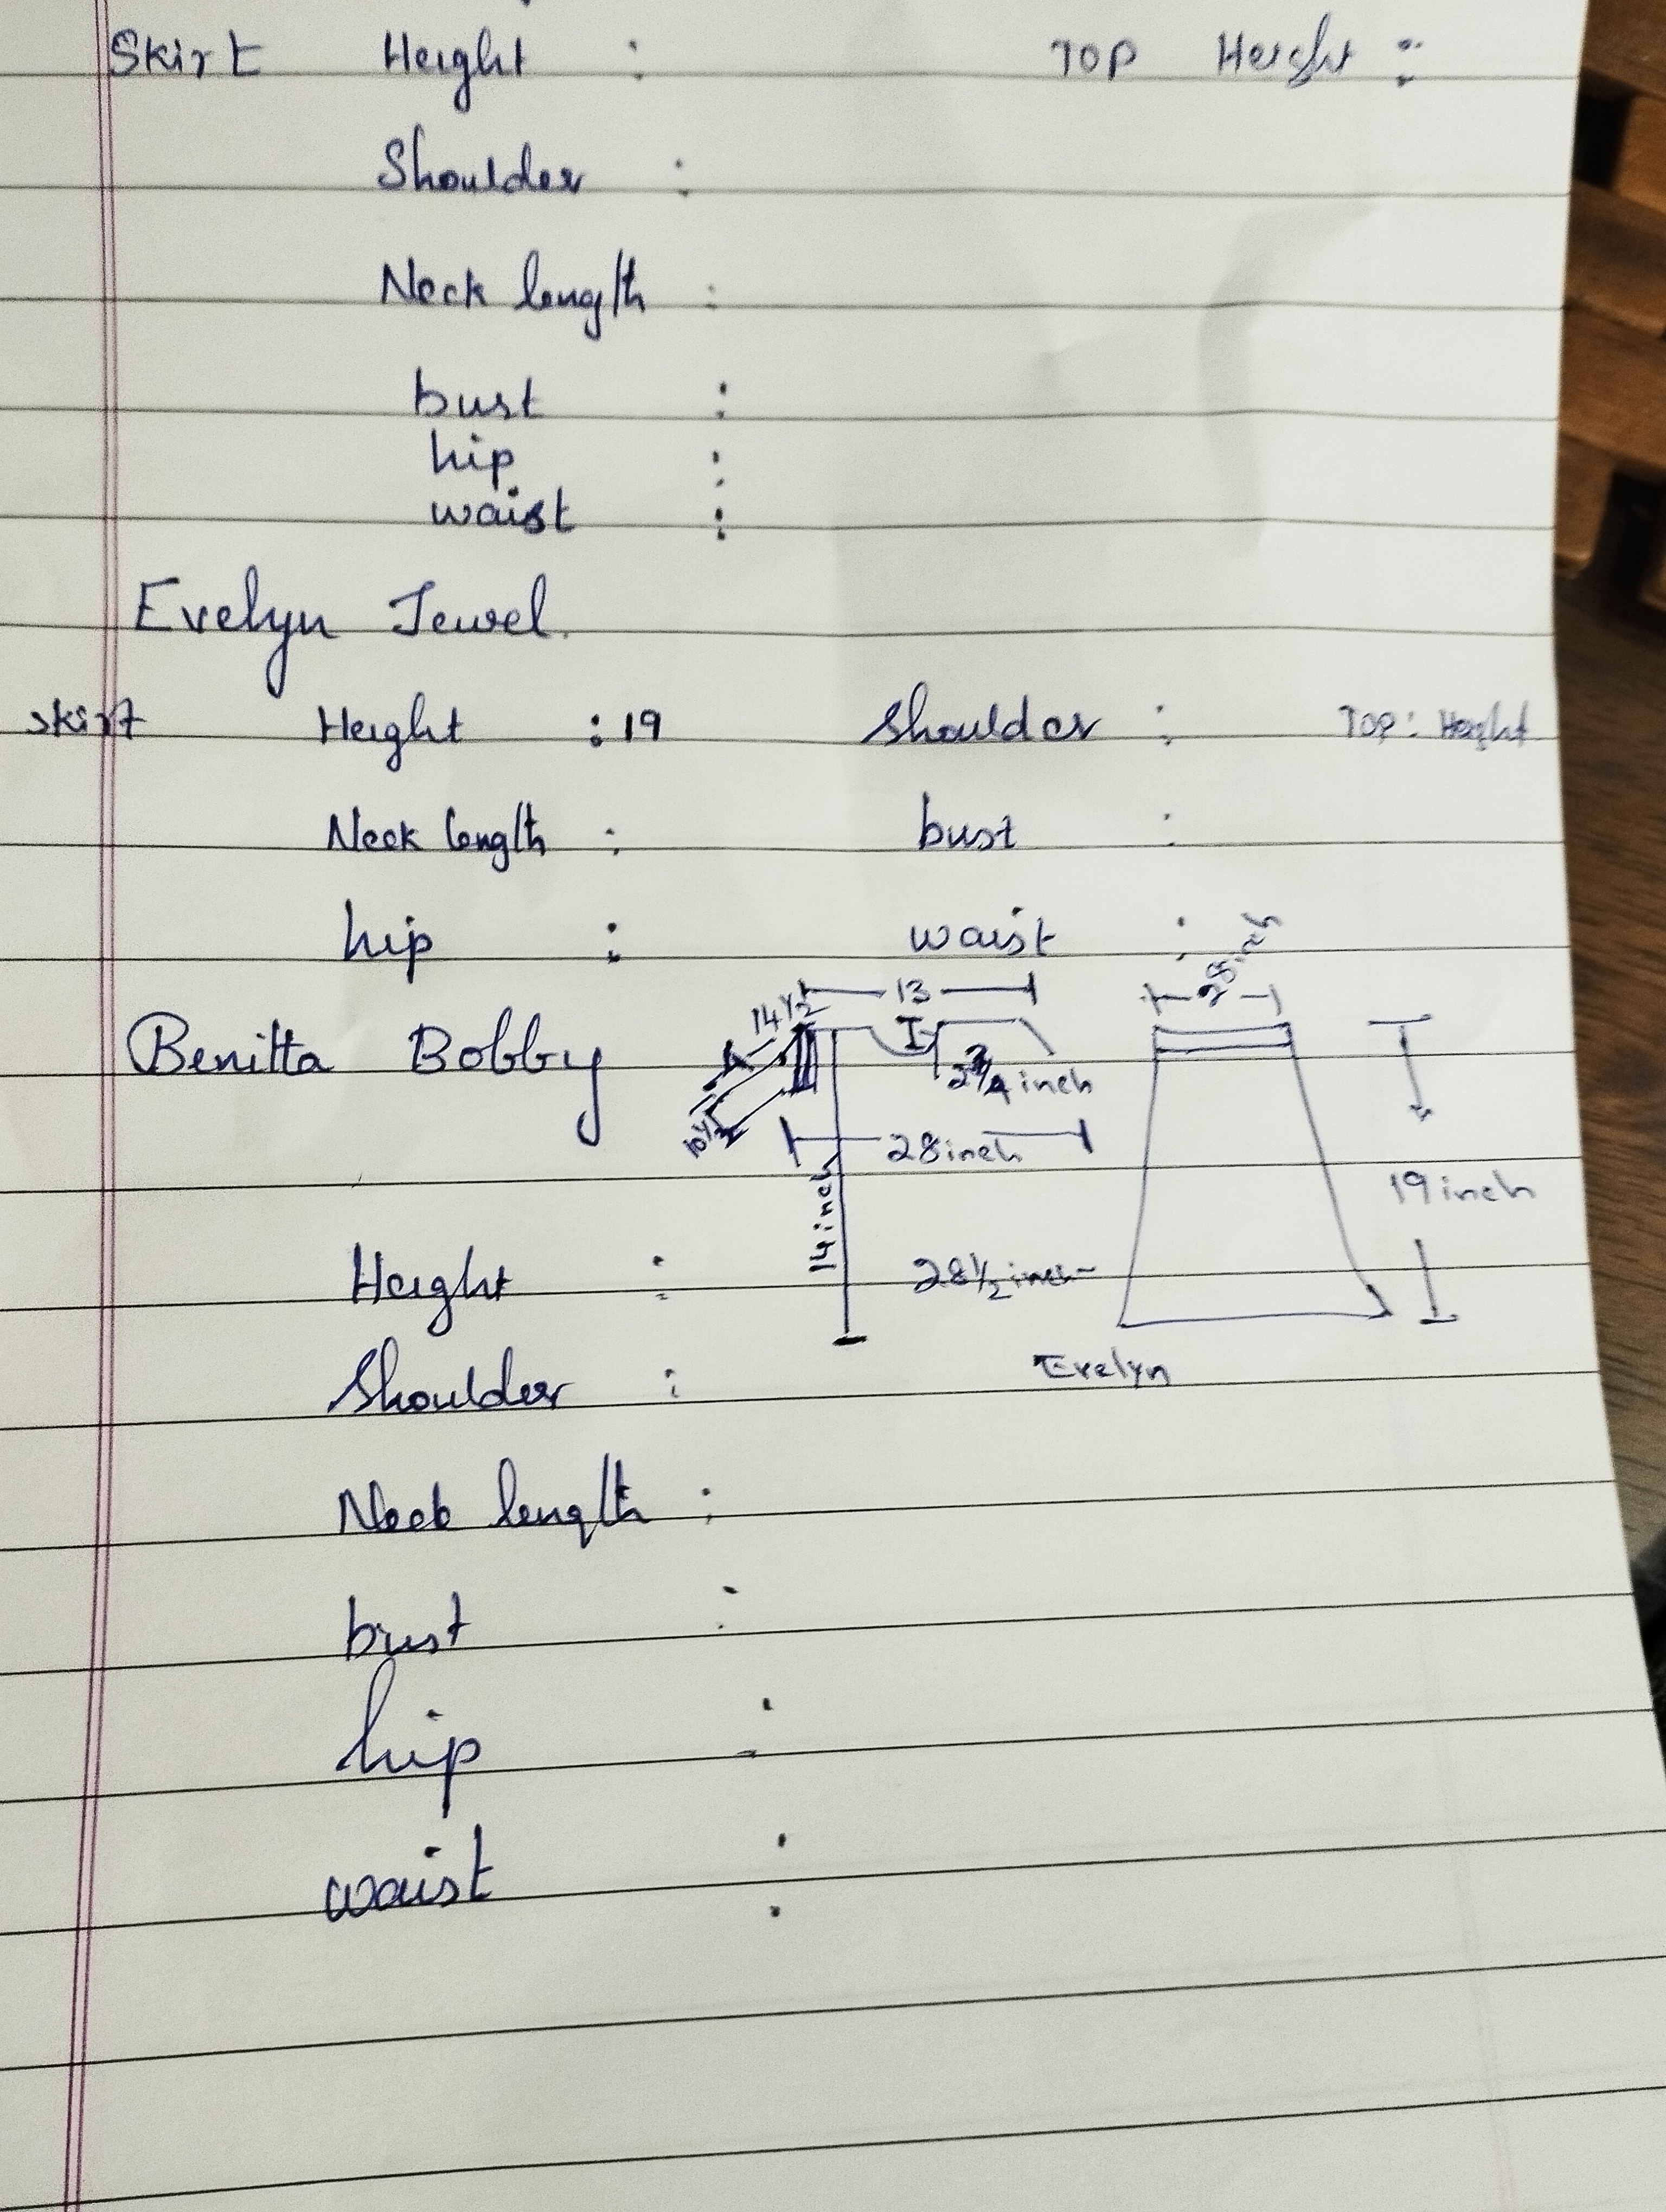 Skirt Height : TOP Height :
Shoulder :
Neck length :
bust :
hip :
waist :
Evelyn Jewel.
skirt Height : 19 Shoulder : TOP : Height
Neck length : bust :
hip : waist :
28 inch
13
14 1/2
Benitta Bobby
2 3/4 inch
10 1/2
28 inch
14 inch
19 inch
Height : 28 1/2 inch
Evelyn
Shoulder :
Neck length :
bust :
hip :
waist :